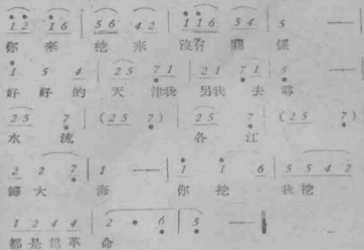 1̇ 2̇ 1̇6 | 56 42 | 1̇ 1̇6 54 | 5 — |
你來挖來沒有關係
1̇ 5 4 | 25 71 | 21 71 | 5 — |
好好的天 我 我去
25 7 | (25 7) | 25 7 | (25 7) |
水流 各江
2 2 7 | 1 — | 1̇ 1̇ 6 | 5 5 4 2 |
歸大海 你挖 我挖
1 2 4 4 | 2 · 6 | 5 — |
都是爲革命